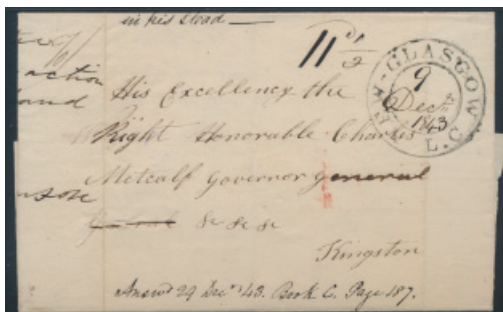 in his stead
11 1/2
GLASGOW
9
Dec
1843
L.C.
action
His Excellency the
Right Honorable Charles
Metcalf Governor general
&c &c &c
Kingston
Answd 29 Dec '43. Book C. Page 187.